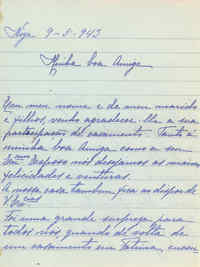 Niza 9-5-943
Minha boa Amiga
Em meu nome e de meu marido
e filhos, venho agradecer-lhe a sua
participação de casamento. Tanto á
minha boa Amiga como a seu
Exmo Esposo nós desejamos as maiores
felicidades e venturas.
A nossa casa tambem fica ao dispor de
V. Exas
Foi uma grande surpreza para
todos nós quando de volta de
um casamento em Fatima,